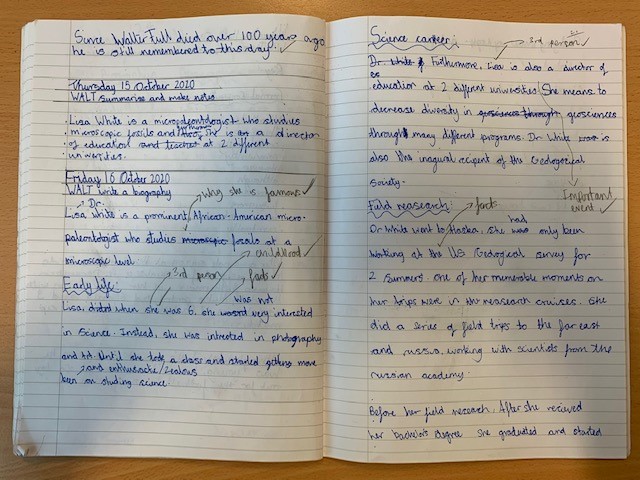 Since Walter Tull died over 100 years ago
he is still remembered to this day.
Thursday 15 October 2020
WALT summarise and make notes
Lisa White is a micropaleontologist who studies
microscopic fossils and She is a director
of education and at 2 different
universities.
Friday 16 October 2020
WALT write a biography
why she is famous
Dr.
Lisa White is a prominent African-American micro-
paleontologist who studies microscopic fossils at a
microscopic level
childhood
Early life:
3rd person
facts
was not
Lisa, didn't when she was 6, she wasn't very interested
in science. Instead, she was intrested in photography
and Art. Until she took a class and started getting more
and enthusiastic/zealous
keen on studing science.
Science career:
3rd person
Dr. White Furthermore, Lisa is also a director of
education at 2 different universities. She means to
decrease diversity in geosciences through geosciences
through many different programs. Dr White is
also the inagural recipent of the Geological
Society.
Important
event
Field reasearch:
facts
had
Dr White went to Alaska, she was only been
working at the US Geological survey for
2 summers. one of her memerable moments on
her trips were in the reasearch cruises. She
did a series of field trips to the far east
and russia, working with scientists from the
russian academy.
Before her field reseach, After she recieved
her bachelors degree she graduated and started